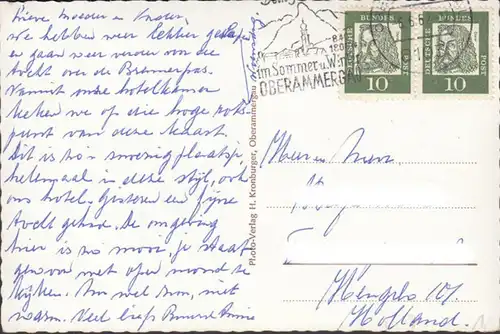 Lieve Moeder en Ouders,
We hebben weer lekker geslapen
en gaan weer verder van de
tocht over de Brennerpas.
Vanuit onze hotelkamer
keken we op die hoge rots-
punt van deze kaart.
Dit is zo'n snoezig plaatsje,
helemaal in deze stijl, ook
ons hotel. Gisteren een fijne
tocht gehad. De omgeving
hier is zo mooi, je staat
gewoon met open mond te
kijken. Am wel zon, niet
warm. Veel liefs
Photo-Verlag H. Kronburger, Oberammergau
im Sommer u. Winter
OBERAMMERGAU
DEUTSCHE BUNDESPOST
10
DEUTSCHE BUNDESPOST
10
Hengelo (O).
Holland.